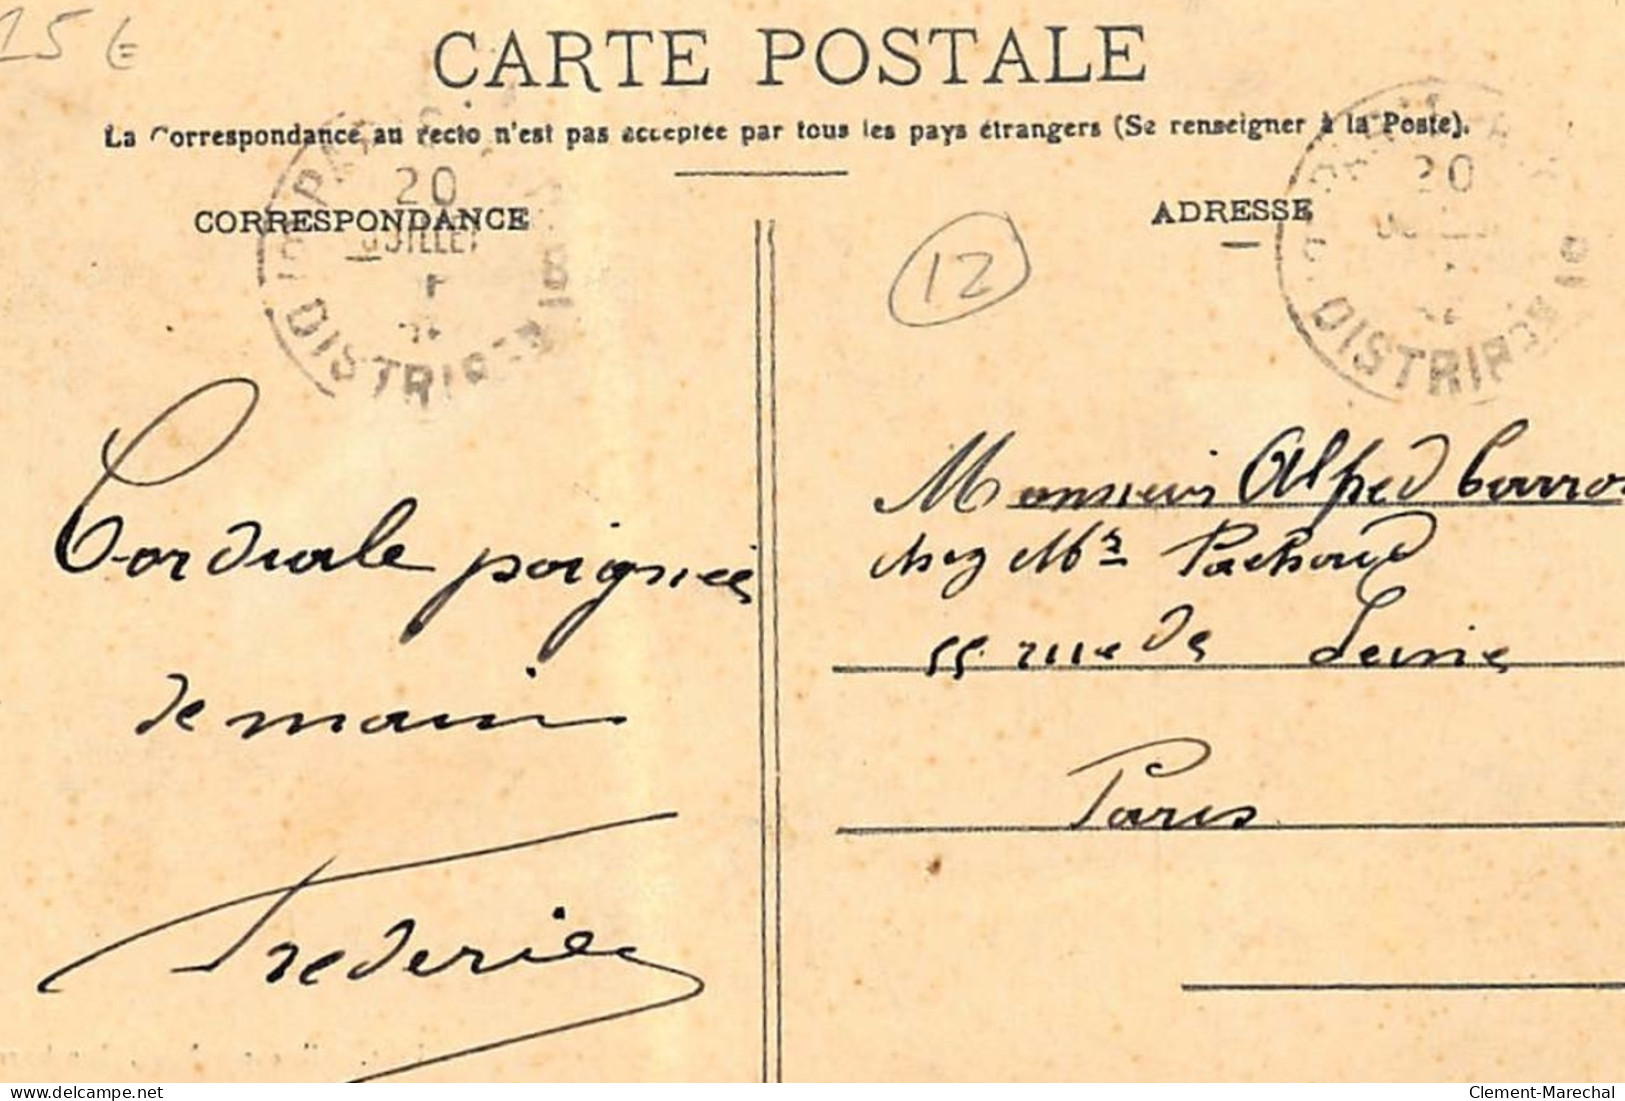 15 €
CARTE POSTALE
La Correspondance au recto n'est pas acceptée par tous les pays étrangers (Se renseigner à la Poste).
CORRESPONDANCE
ADRESSE
20
JUILLET
DISTRIB
20
DISTRIB
12
Cordiale poignée
de main
Frederic
Monsieur Alfred
chez Mr Pachoud
55 rue de Seine
Paris
www.delcampe.net
Clement-Marechal